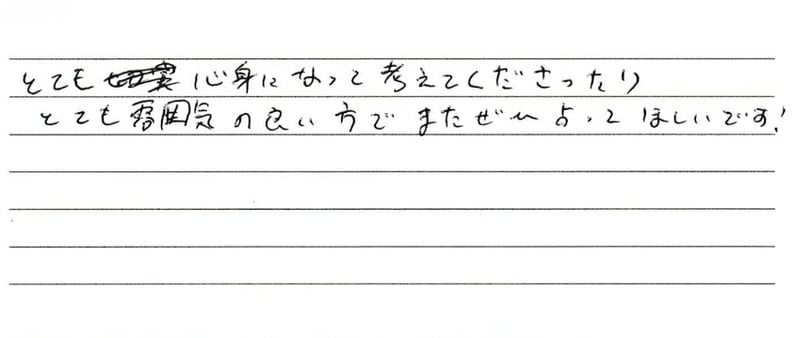 とても心身になって考えてくださったり
とても雰囲気の良い方でまたぜひ占ってほしいです!